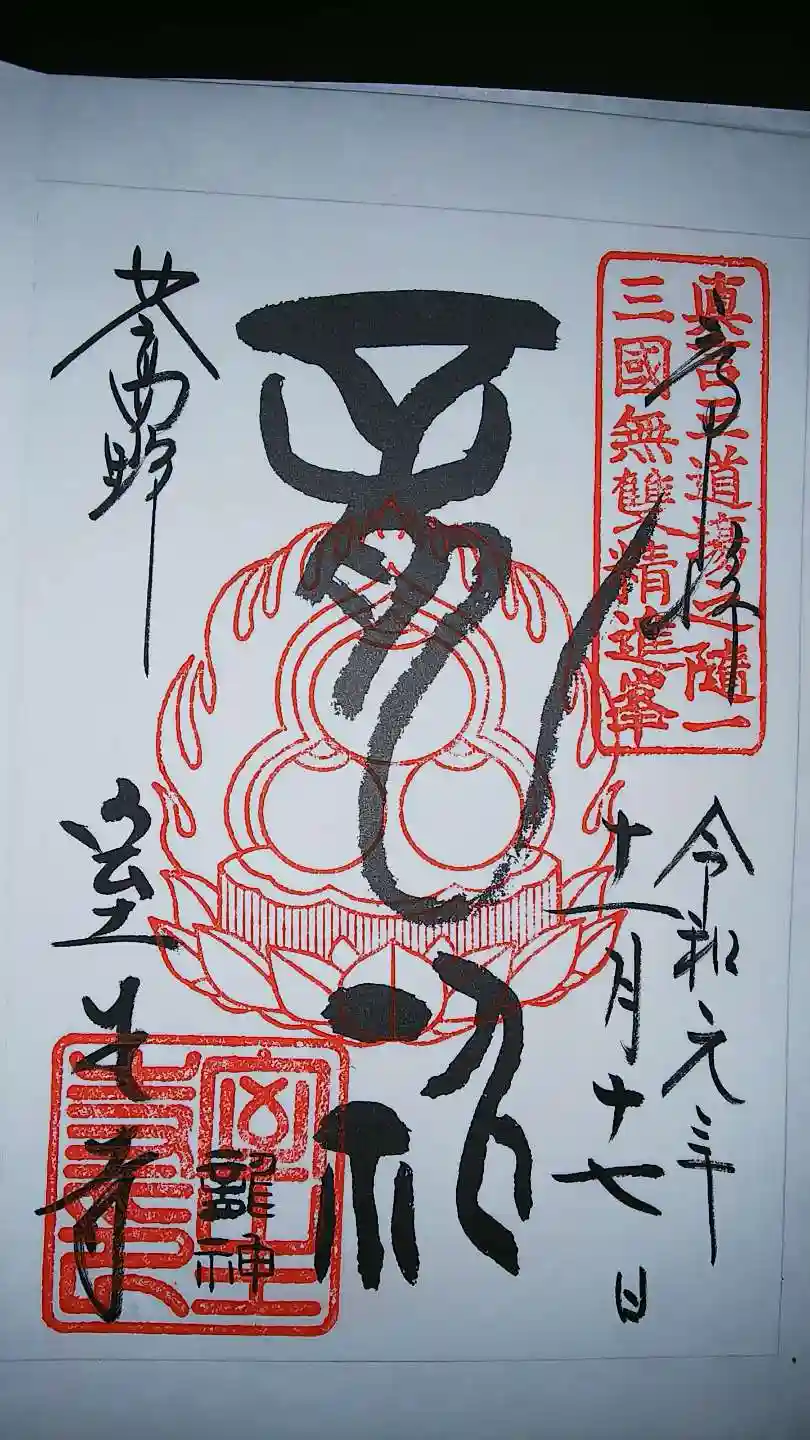 奉拝
真言王道場之隨一
三國無雙精進峯
令和元年
十一月十七日
龍神
女人高野
室生寺